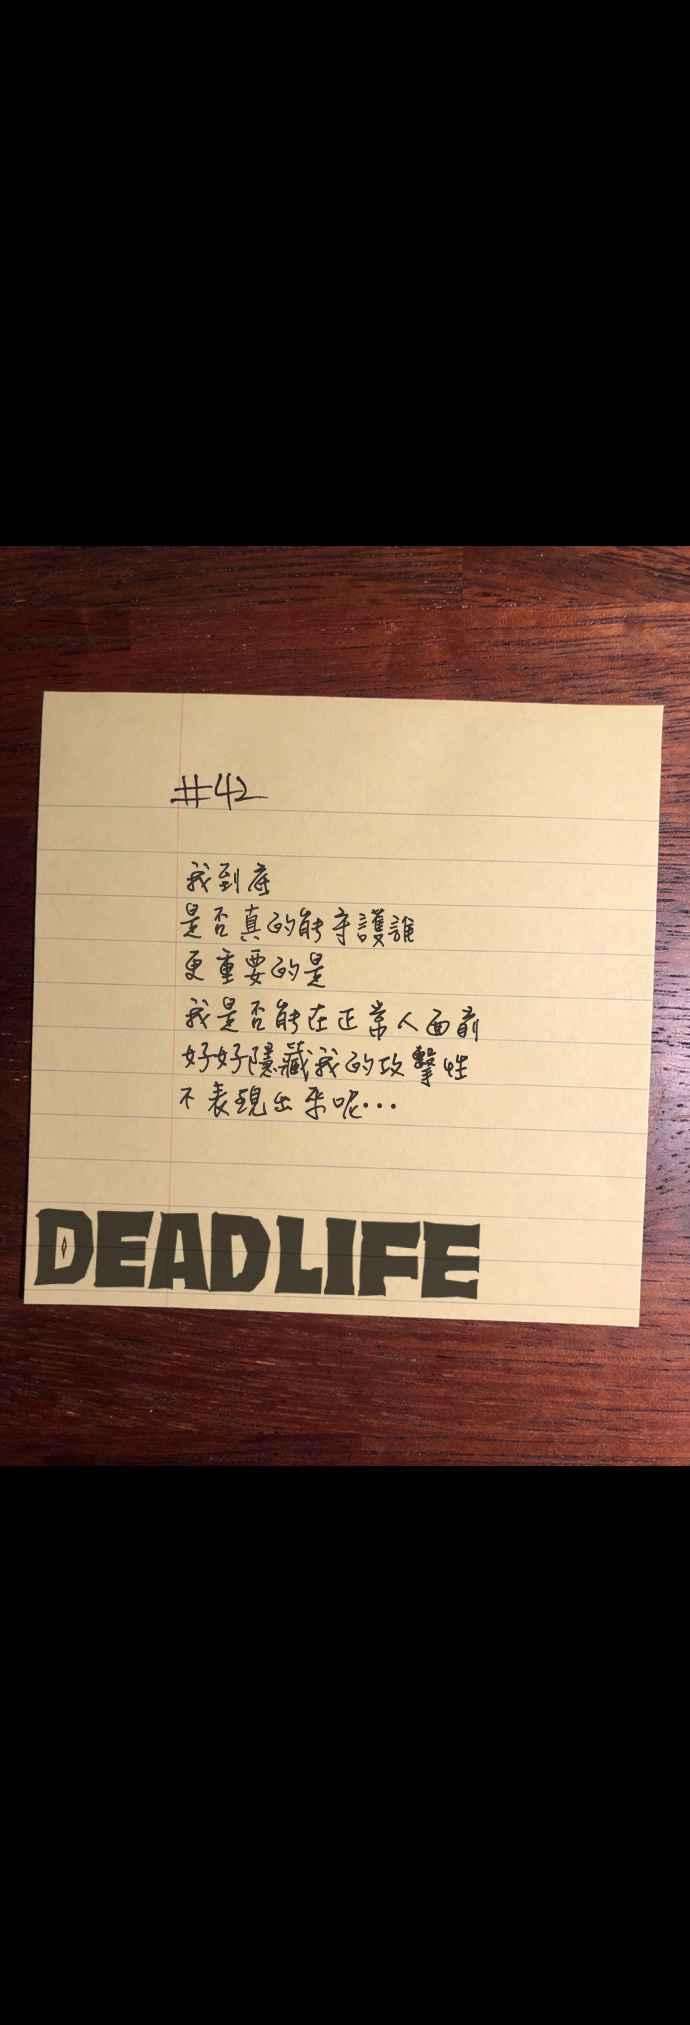 #42
我到底
是否真的能守護誰
更重要的是
我是否能在正常人面前
好好隱藏我的攻擊性
不表現出來呢…
DEADLIFE